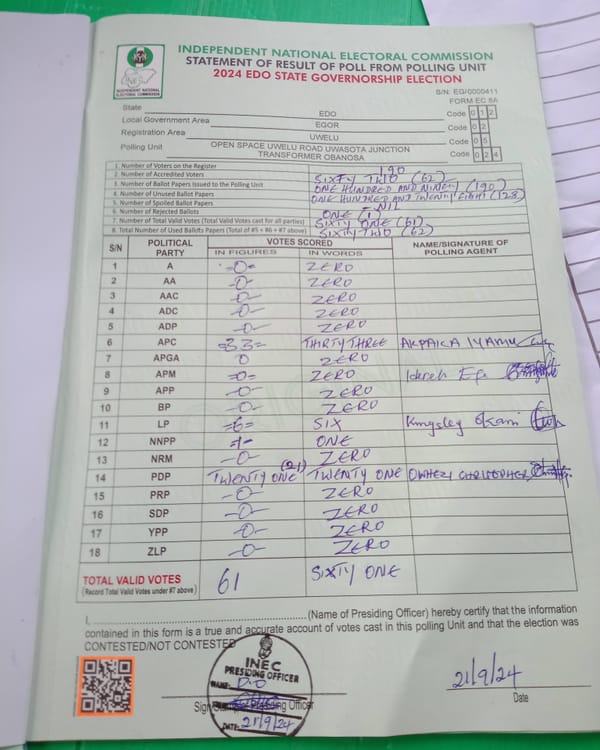 INDEPENDENT NATIONAL ELECTORAL COMMISSION
STATEMENT OF RESULT OF POLL FROM POLLING UNIT
2024 EDO STATE GOVERNORSHIP ELECTION
INDEPENDENT NATIONAL ELECTORAL COMMISSION
S/N: EG/0000411
FORM EC 8A
State EDO Code 0 1 2
Local Government Area EGOR Code 0 2
Registration Area UWELU Code 0 5
Polling Unit OPEN SPACE UWELU ROAD UWASOTA JUNCTION TRANSFORMER OBANOSA Code 0 2 4
1. Number of Voters on the Register 190
2. Number of Accredited Voters SIXTY TWO (62)
3. Number of Ballot Papers Issued to the Polling Unit ONE HUNDRED AND NINETY (190)
4. Number of Unused Ballot Papers ONE HUNDRED AND TWENTY EIGHT (128)
5. Number of Spoiled Ballot Papers - NIL
6. Number of Rejected Ballots ONE (1)
7. Number of Total Valid Votes (Total Valid Votes cast for all parties) SIXTY ONE (61)
8. Total Number of Used Ballots Papers (Total of #5 + #6 + #7 above) SIXTY TWO (62)
S/N POLITICAL PARTY VOTES SCORED NAME/SIGNATURE OF POLLING AGENT
IN FIGURES IN WORDS
1 A =0= ZERO
2 AA -0- ZERO
3 AAC -0- ZERO
4 ADC -0- ZERO
5 ADP -0- ZERO
6 APC =33= THIRTY THREE AKPAIKA IYAMU
7 APGA 0 ZERO
8 APM =0= ZERO
9 APP -0- ZERO
10 BP -0- ZERO
11 LP =6= SIX Kingsley
12 NNPP =1= ONE
13 NRM -0- ZERO
14 PDP TWENTY ONE (21) TWENTY ONE OWHEZI CHRISTOPHER
15 PRP -0- ZERO
16 SDP -0- ZERO
17 YPP -0- ZERO
18 ZLP -0- ZERO
TOTAL VALID VOTES 61 SIXTY ONE
(Record Total Valid Votes under #7 above)
I, (Name of Presiding Officer) hereby certify that the information
contained in this form is a true and accurate account of votes cast in this polling Unit and that the election was
CONTESTED/NOT CONTESTED
INEC
PRESIDING OFFICER
NAME: P.O
DATE: 21/9/24
Officer
21/9/24
Date